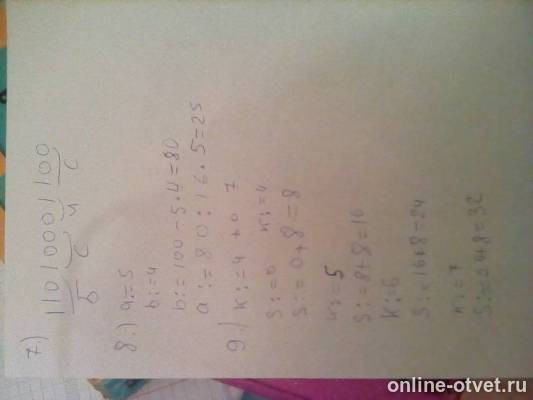 7) 11010001100
б с ч с
8.) a:=5
b:=4
b:=100-5·4=80
a:=80:16·5=25
9.) k:=4 to 7
S:=0 k:=4
S:=0+8=8
k:=5
S:=8+8=16
k:=6
S:=16+8=24
k:=7
S:=24+8=32
online-otvet.ru